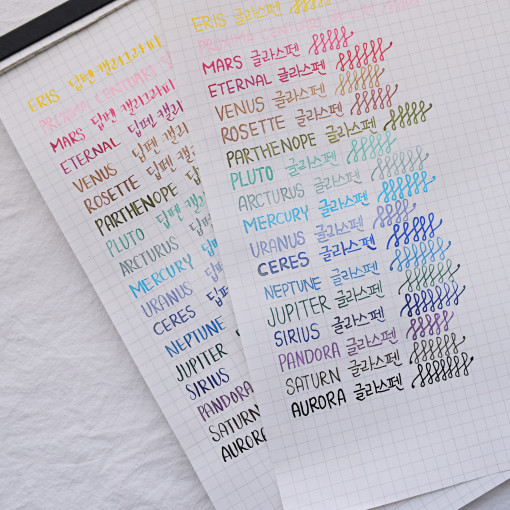 ERIS 딥펜 캘리그라피
MARS 딥펜 캘리그라피
ETERNAL 딥펜 캘리
VENUS 딥펜 캘리
ROSETTE 딥펜 캘
PARTHENOPE 딥
PLUTO 딥펜
ARCTURUS 딥펜
MERCURY 딥
URANUS 딥펜
CERES 딥
NEPTUNE
JUPITER
SIRIUS
PANDORA
SATURN
AURORA
ERIS 글라스펜
MARS 글라스펜
ETERNAL 글라스펜
VENUS 글라스펜
ROSETTE 글라스펜
PARTHENOPE 글라스펜
PLUTO 글라스펜
ARCTURUS 글라스펜
MERCURY 글라스펜
URANUS 글라스펜
CERES 글라스펜
NEPTUNE 글라스펜
JUPITER 글라스펜
SIRIUS 글라스펜
PANDORA 글라스펜
SATURN 글라스펜
AURORA 글라스펜